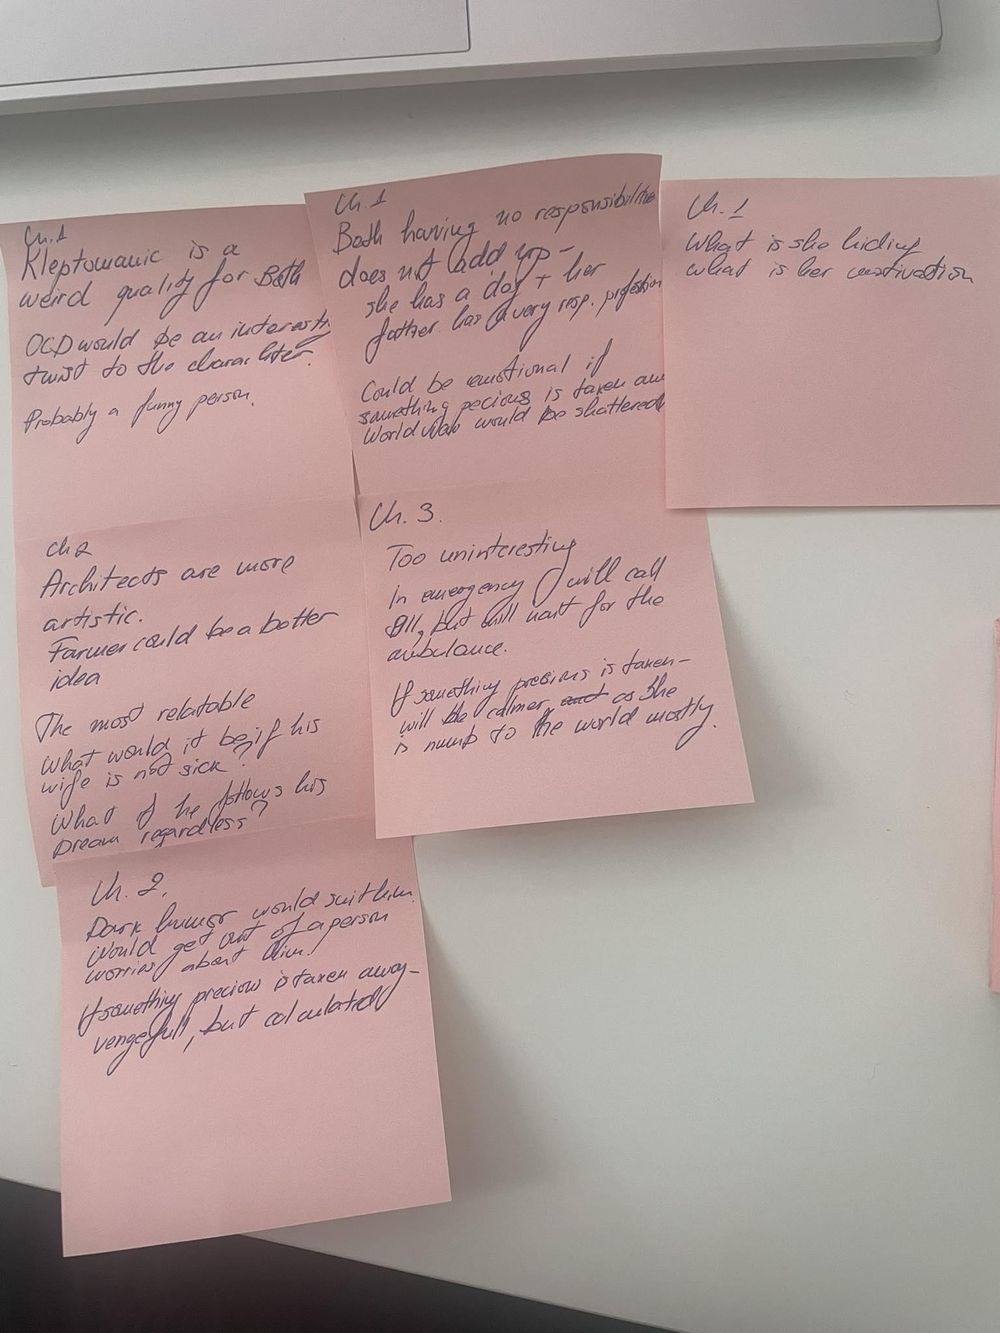 Ch.1
Kleptomanic is a
weird quality for Beth
OCD would be an interesti
twist to the charachter.
Probably a funny person.
Ch.1
Beth having no responsibilitie
does not add up -
she has a dog + her
father has a very resp. profession
Could be emotional if
something pecious is taken awa
World view would be shattered
Ch.1
What is she hiding
what is her motivation
Ch 2
Architects are more
artistic.
Farmer could be a better
idea
The most relatable
What would it be if his
wife is not sick?
What if he follows his
Dream regardless?
Ch. 3.
Too uninteresting
In emergency will call
911, but will wait for the
ambulance.
If something precious is taken-
will be calmer, and as she
is numb to the world mostly.
Ch. 2.
Dark humor would suit him.
Would get out of a person
worries about him.
If something precious is taken away-
vengefull, but calculated